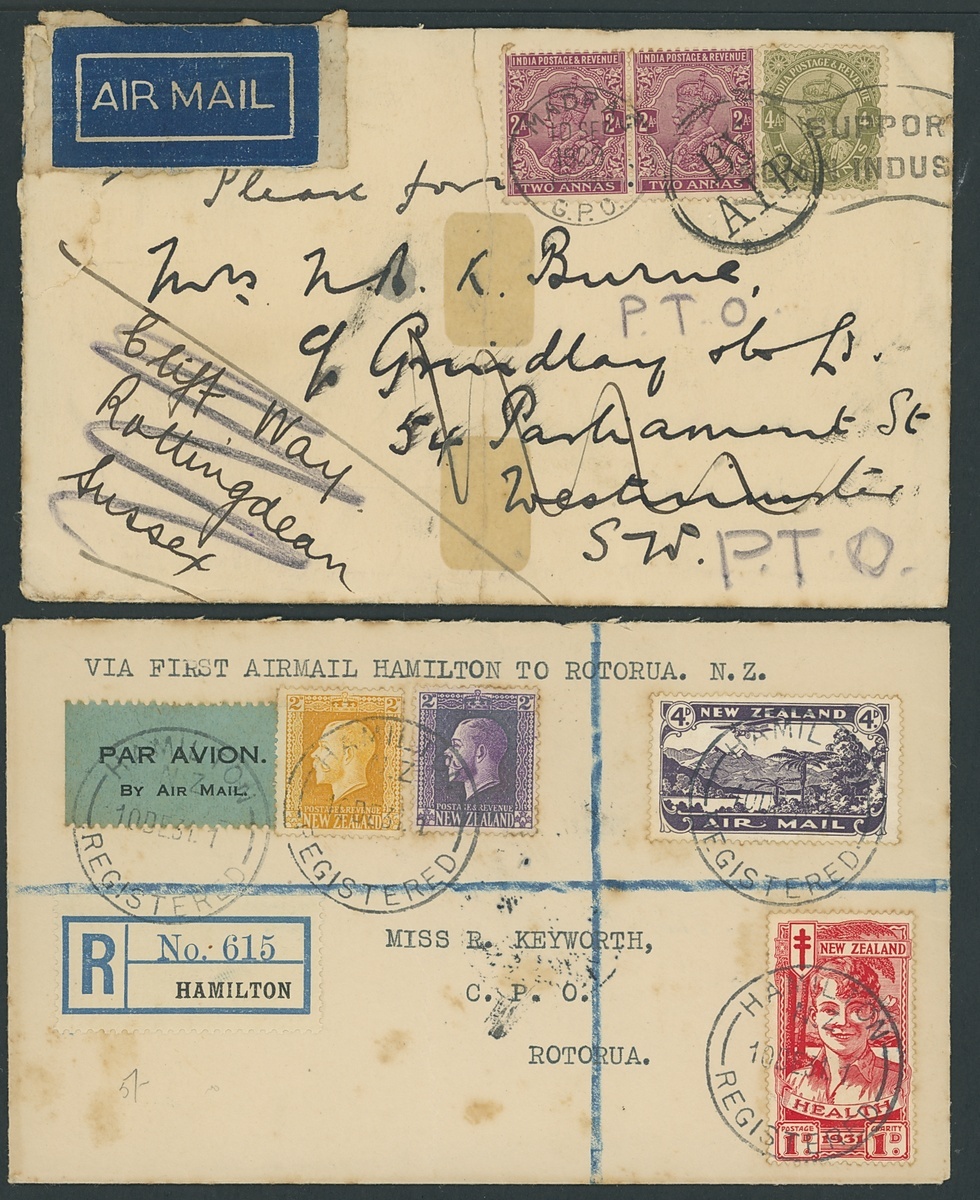 AIR MAIL
INDIA POSTAGE & REVENUE
2As 2As
TWO ANNAS
INDIA POSTAGE & REVENUE
2As 2As
TWO ANNAS
INDIA POSTAGE & REVENUE
4As
MADRAS
10 SEP
G.P.O.
BY
AIR
SUPPOR
INDIAN INDUS
Please forw
Mrs N. K. Burne,
P.T.O.
c/ Grindlay & Co Ld.
54 Parliament St
Westminster
S.W.
P.T.O.
Cliff Way
Rottingdean
Sussex
VIA FIRST AIRMAIL HAMILTON TO ROTORUA. N.Z.
PAR AVION.
By Air Mail.
2D 2D
POSTAGE & REVENUE
NEW ZEALAND
2D 2D
POSTAGE & REVENUE
NEW ZEALAND
4D NEW ZEALAND 4D
AIR MAIL
HAMILTON
N.Z.
10DE31.1
REGISTERED
HAMILTON
REGISTERED
HAMILTON
REGISTERED
R No. 615
HAMILTON
MISS R. KEYWORTH,
C. P. O.
ROTORUA.
NEW ZEALAND
HEALTH
POSTAGE CHARITY
1D 1931 1D
HAMILTON
REGISTERED
5/-